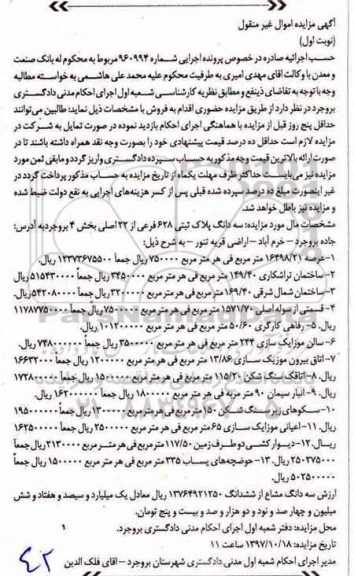 آگهی مزایده اموال غیر منقول
(نوبت اول)
حسب اجرائیه صادره در خصوص پرونده اجرایی شماره ۹۶۰۹۹۴ مربوط به محکوم له بانک صنعت
و معدن با وکالت اقای مهدی امیری به طرفیت محکوم علیه محمد علی هاشمی به خواسته مطالبه
وجه با توجه به تقاضای ذینفع و مطابق نظریه کارشناسی شعبه اول اجرای احکام مدنی دادگستری
بروجرد در نظر دارد از طریق مزایده حضوری اقدام به فروش با مشخصات ذیل نماید؛ طالبین می‌توانند
حداقل پنج روز قبل از مزایده با هماهنگی اجرای احکام بازدید نموده در صورت تمایل به شرکت در
مزایده لازم است حداقل ده درصد قیمت پیشنهادی خود را بصورت وجه نقد همراه داشته باشند تا در
صورت ارائه بالاترین قیمت وجه مذکور به حساب سپرده دادگستری واریز گردد و مابقی ثمن مورد
مزایده نیز می‌بایست حداکثر ظرف مهلت یکماه از تاریخ مزایده به حساب مذکور پرداخت گردد در
غیر اینصورت مبلغ ده درصد سپرده شده قبلی پس از کسر هزینه‌های اجرایی به نفع دولت ضبط شده
و مزایده نیز باطل خواهد شد.
مشخصات مال مورد مزایده: سه دانگ پلاک ثبتی ۶۲۸ فرعی از ۳۲ اصلی بخش ۴ بروجردبه آدرس:
جاده بروجرد – خرم آباد – اراضی قریه تنور – به شرح ذیل:
۱-عرصه ۱۶۴۹۸/۲۱ متر مربع فی هر متر مربع ۷۵۰۰۰۰ ریال جمعاً ۱۲۳۷۳۶۷۵۵۰۰ ریال.
۲-ساختمان تراشکاری ۱۴۹/۴۰ متر مربع فی هر متر مربع ۳۴۵۰۰۰۰ ریال جمعاً ۵۱۵۴۳۰۰۰۰ ریال.
۳-ساختمان شمال شرقی ۱۶۹/۴۰ متر مربع فی هر متر مربع ۳۲۰۰۰۰۰ ریال جمعاً ۵۴۲۰۸۰۰۰۰ ریال.
۴- قسمتی از سوله اصلی ۱۵۷۱/۷۰ متر مربع فی هر متر مربع ۷۵۰۰۰۰ ریال جمعاً ۱۱۷۸۷۷۵۰۰۰
ریال. ۵- رفاهی کارگری ۵۰/۶۰ متر مربع فی هر متر مربع ۲۰۰۰۰۰۰ ریال جمعاً ۱۰۱۲۰۰۰۰۰ ریال.
۶- سالن موزاییک سازی ۲۴۴ متر مربع فی هر متر مربع ۳۵۰۰۰۰ ریال جمعاً ریال.
۷- اتاق بیرون موزیک سازی ۱۳/۸۶ متر مربع فی هر متر مربع ۱۲۰۰۰۰۰ ریال جمعاً ۱۶۶۳۲۰۰۰
ریال. ۸- اتاقک سنگ شکن ۱۱۵/۲۰ متر مربع فی هر متر مربع ۱۵۰۰۰۰۰ ریال جمعاً
ریال. ۹- انبار سیمان ۹۰ متر مربع فی هر متر مربع ۱۸۰۰۰۰۰ ریال جمعاً ۱۶۲۰۰۰۰۰۰ ریال.
۱۰- سکوهای زیر سنگ شکن ۱۵۰ متر مربع فی هر متر مربع ۱۳۰۰۰۰۰ ریال جمعاً ۱۹۵۰۰۰۰۰۰
ریال. ۱۱- اعیانی موزاییک سازی ۶۵ متر مربع فی هر متر مربع ۲۵۰۰۰۰۰ ریال جمعاً ۱۶۲۵۰۰۰۰۰
ریـال. ۱۲- دیوار کشی دو طرف زمین ۱۱۷/۵۰ متر مربع فی هر متر مربع ۲۱۳۰۰۰۰ ریال جمعاً
ریال. ۱۳- حوضچه‌های پساب ۳۳۵ متر مربع فی هر متر مربع ۱۵۰۰۰۰۰ ریال جمعاً
۵۰۲۵۰۰۰۰۰ ریال.
ارزش سه دانگ مشاع از ششدانگ ۱۳۷۶۴۹۲۱۲۵۰ ریال معادل یک میلیارد و سیصد و هفتاد و شش
میلیون و چهار صد و نود و دو هزار و صد و بیست و پنج تومان.
محل مزایده: دفتر شعبه اول اجرای احکام مدنی دادگستری بروجرد.
تاریخ مزایده: ۱۳۹۷/۱۰/۱۸ ساعت ۱۱
مدیر اجرای احکام شعبه اول مدنی دادگستری شهرستان بروجرد – اقای فلک الدین
۴۲